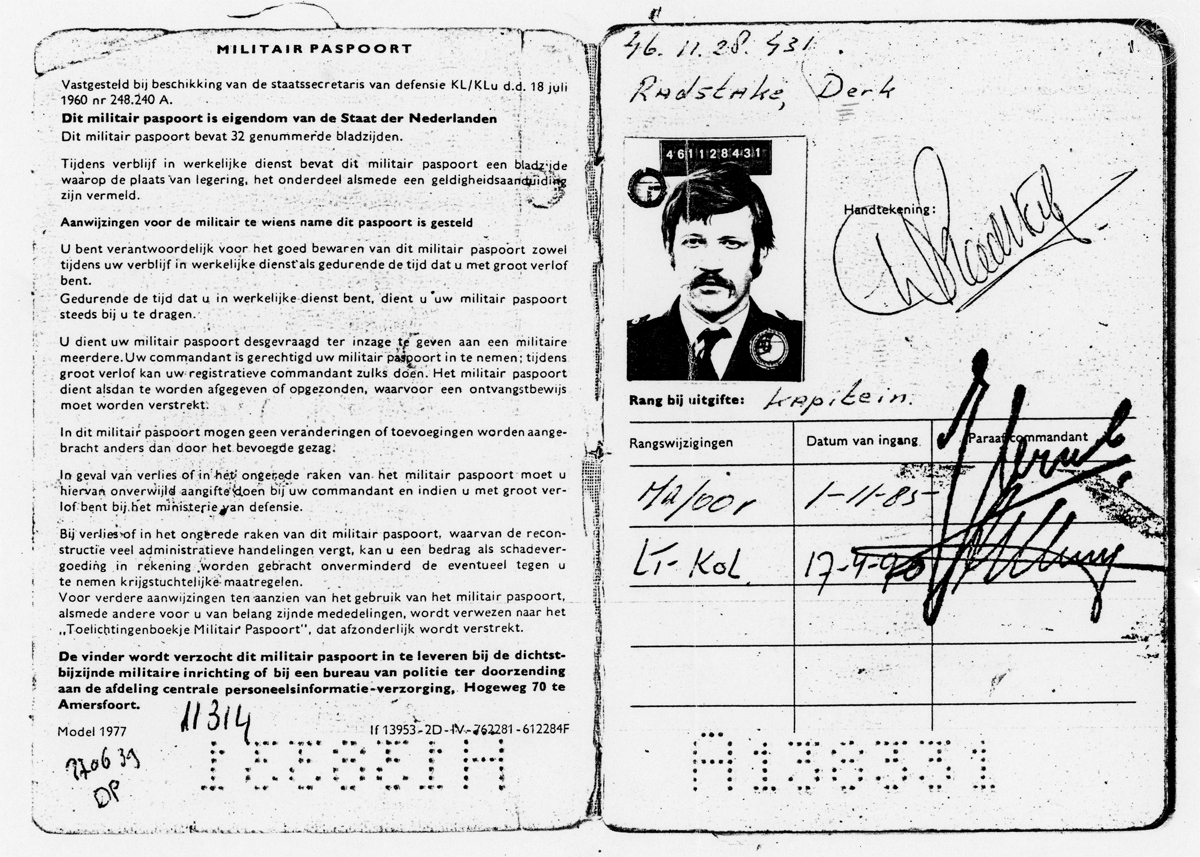 MILITAIR PASPOORT
Vastgesteld bij beschikking van de staatssecretaris van defensie KL/KLu d.d. 18 juli
1960 nr 248.240 A.
Dit militair paspoort is eigendom van de Staat der Nederlanden
Dit militair paspoort bevat 32 genummerde bladzijden.
Tijdens verblijf in werkelijke dienst bevat dit militair paspoort een bladzijde
waarop de plaats van legering, het onderdeel alsmede een geldigheidsaanduiding
zijn vermeld.
Aanwijzingen voor de militair te wiens name dit paspoort is gesteld
U bent verantwoordelijk voor het goed bewaren van dit militair paspoort zowel
tijdens uw verblijf in werkelijke dienst als gedurende de tijd dat u met groot verlof
bent.
Gedurende de tijd dat u in werkelijke dienst bent, dient u uw militair paspoort
steeds bij u te dragen.
U dient uw militair paspoort desgevraagd ter inzage te geven aan een militaire
meerdere. Uw commandant is gerechtigd uw militair paspoort in te nemen; tijdens
groot verlof kan uw registratieve commandant zulks doen. Het militair paspoort
dient alsdan te worden afgegeven of opgezonden, waarvoor een ontvangstbewijs
moet worden verstrekt.
In dit militair paspoort mogen geen veranderingen of toevoegingen worden aange-
bracht anders dan door het bevoegde gezag.
In geval van verlies of in het ongerede raken van het militair paspoort moet u
hiervan onverwijld aangifte doen bij uw commandant en indien u met groot ver-
lof bent bij het ministerie van defensie.
Bij verlies of in het ongerede raken van dit militair paspoort, waarvan de recon-
structie veel administratieve handelingen vergt, kan u een bedrag als schadever-
goeding in rekening worden gebracht onverminderd de eventueel tegen u
te nemen krijgstuchtelijke maatregelen.
Voor verdere aanwijzingen ten aanzien van het gebruik van het militair paspoort,
alsmede andere voor u van belang zijnde mededelingen, wordt verwezen naar het
„Toelichtingenboekje Militair Paspoort", dat afzonderlijk wordt verstrekt.
De vinder wordt verzocht dit militair paspoort in te leveren bij de dichtst-
bijzijnde militaire inrichting of bij een bureau van politie ter doorzending
aan de afdeling centrale personeelsinformatie-verzorging, Hogeweg 70 te
Amersfoort.
11314
Model 1977
If 13953-2D-IV-762281-612284F
270639
DP
A136331
46.11.28.431.
1
Radstake, Derk
461128431
Handtekening:
Rang bij uitgifte: kapitein.
Rangswijzigingen Datum van ingang Paraaf commandant
Majoor 1-11-85
Lt-Kol. 17-4-90
A136331